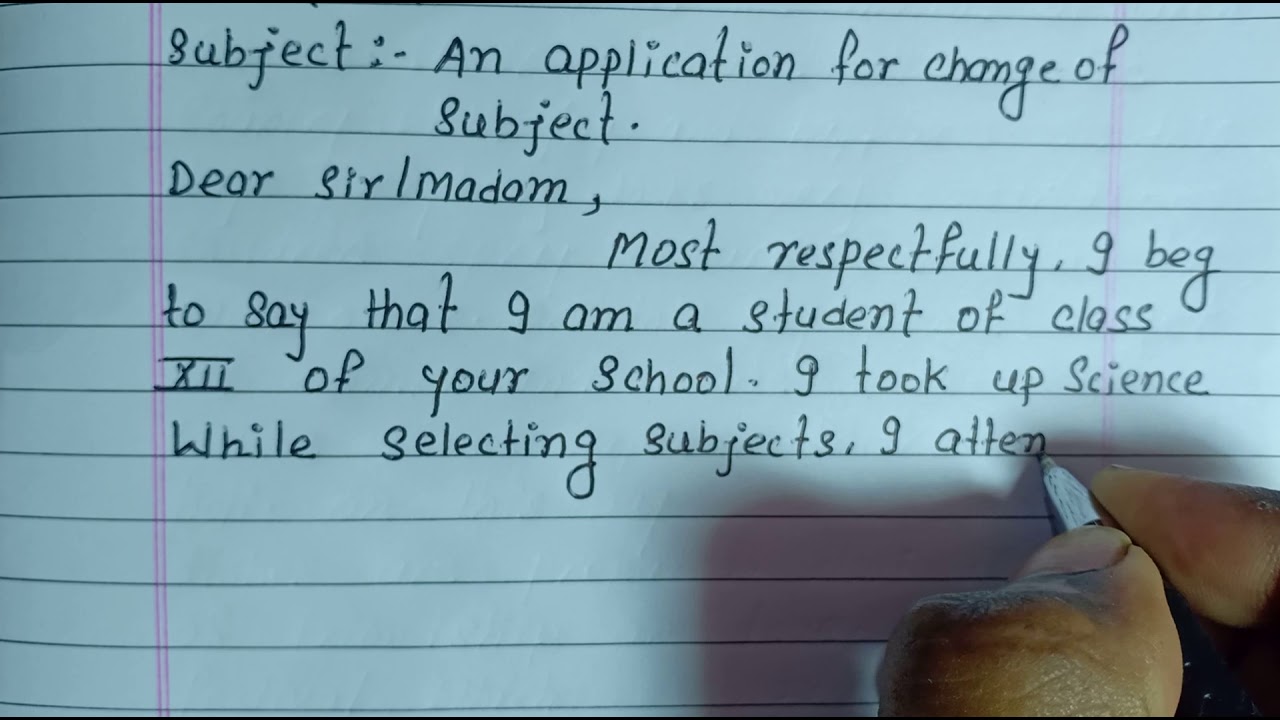 Subject:- An application for change of
subject.
Dear Sir/Madam,
Most respectfully, I beg
to say that I am a student of class
XII of your school. I took up Science
While selecting subjects, I atten